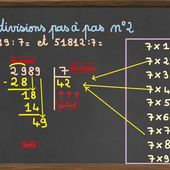 divisions pas à pas n°2
89:7= et 51812:7=
2989 7
28 42
18
14
49
reste
7×1
7×2
7×3
7×4
7×5
7×6
7×7
7×8
7×9